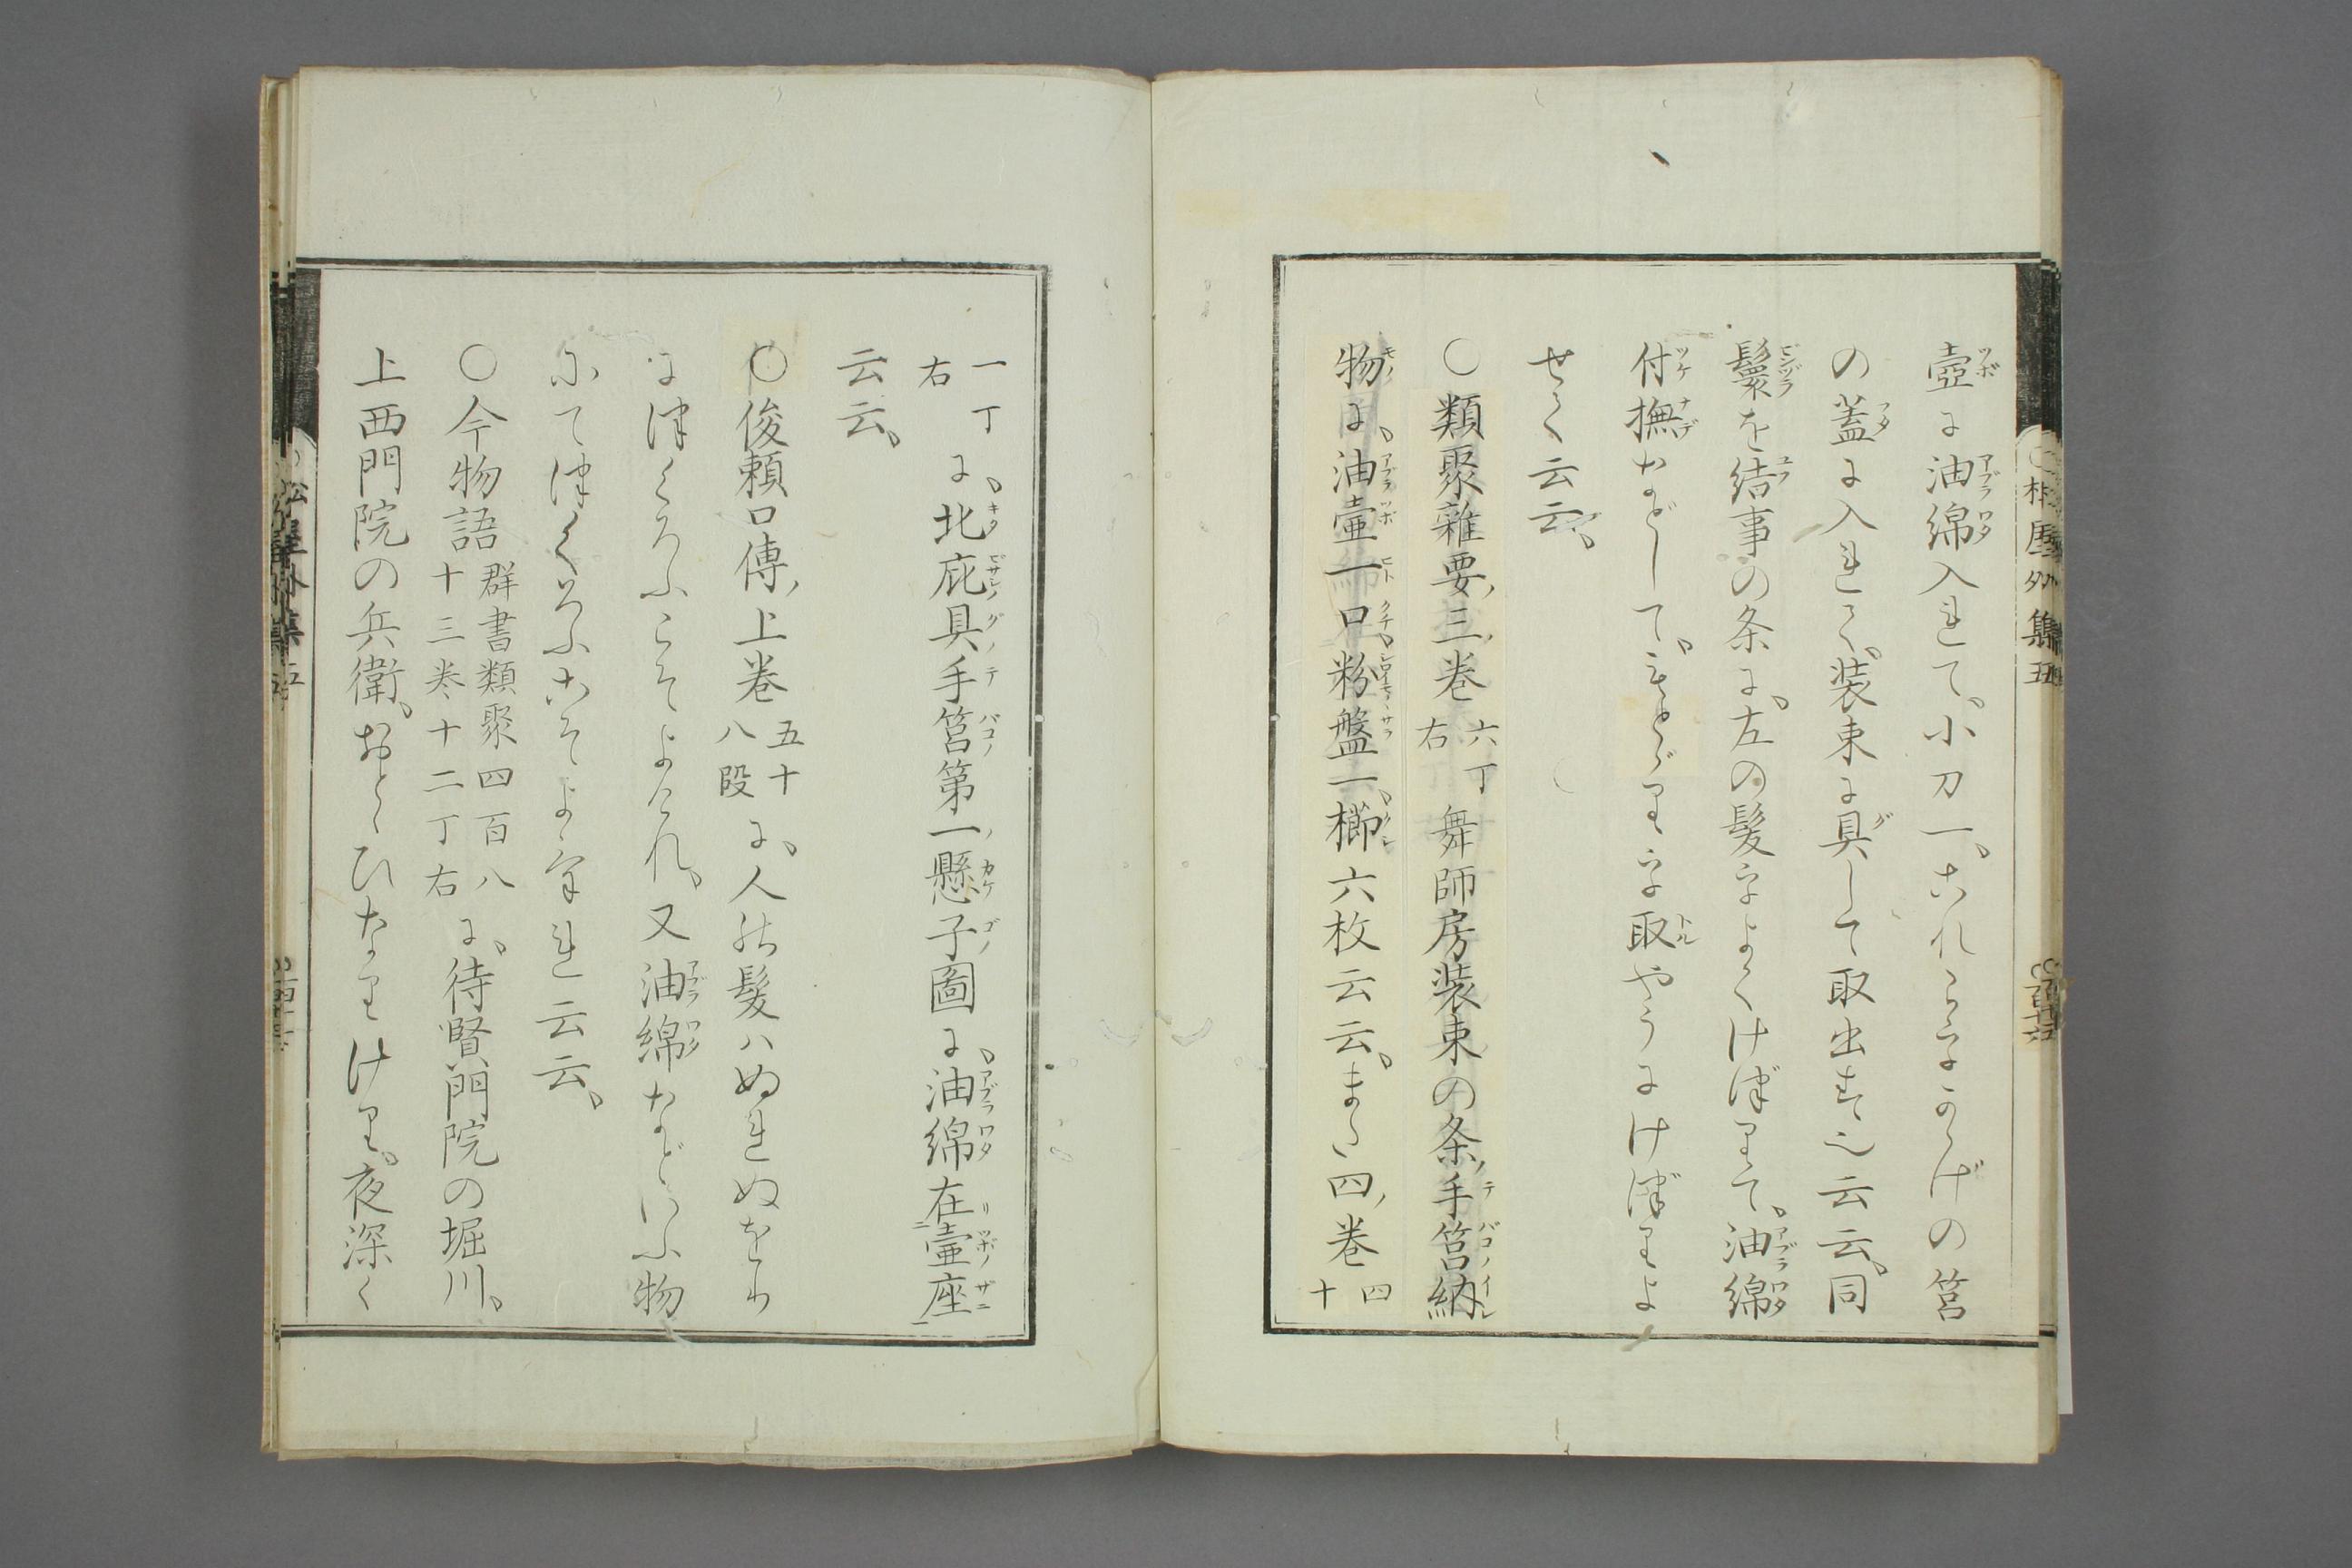 壺に油綿入れて、小刀一、これらをひろげの筥
の蓋に入れて、装束に具して取出す也云云、同
鬟を結事の条に、左の髪をよくけづりて、油綿
付撫などして、もとどりを取やうにけづりよ
せて云云、
○類聚雜要、三、巻六丁右舞師房装束の条、手筥納
物に、油壷一口、粉盤一、櫛六枚云云、また四、巻四十
一丁右に、北庇具手筥第一懸子圖に、油綿在壷座
云云、
○俊頼口傳、上巻五十八段に、人の髪ハぬれぬをり
につくろふこそよけれ、又油綿などいふ物
にてつくろふこそよけれ云云、
○今物語群書類聚四百八十三巻十二丁右に、待賢門院の堀川、
上西門院の兵衛、おとゝひなりけり、夜深く